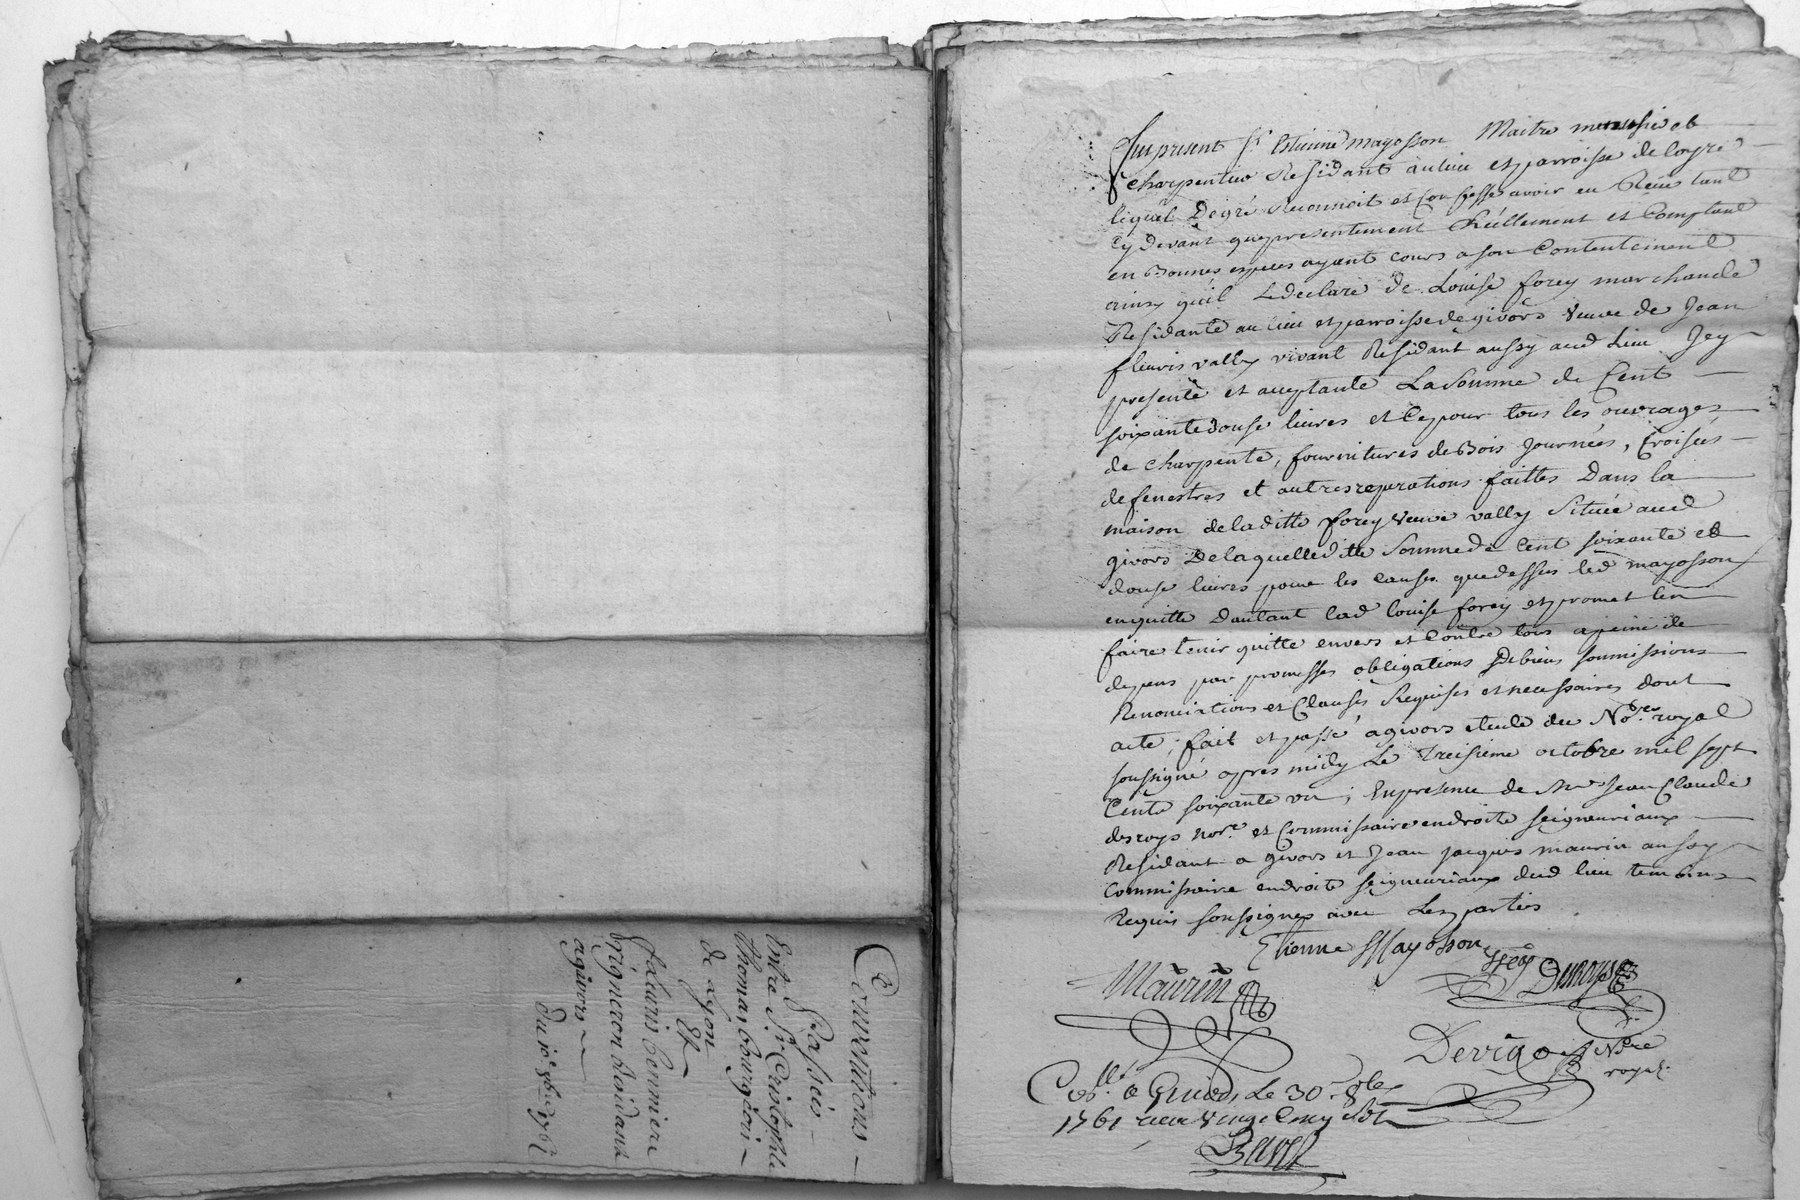 Conventions
Passées
Entre Sr Cristophle
Thomas, bourgeois
de Lyon
Et
fleuris bonniere
vigneron Residant
a givors
Du 10e 8bre 1761
fut present Sr Estienne mayosson Maitre menusier et
charpentier Residant au lieu et parroisse de loyre
lequel De gré reconnoit et confesse avoir eu Reçu tant
cy devant que presentement Réellement et Comptant
en Bonnes especes ayant cours a son Contentement
ainsy qu'il Le declare de Louise forey marchande
Residante au lieu et parroisse de givors veuve de Jean
fleuris vally vivant Residant aussy aud Lieu Icy
presente et acceptante La Somme de Cent
soixante douse livres et Ce pour tous les ouvrages
de charpente, fournitures de Bois Journées, Croisées
de fenestres et autres reparations faittes Dans la
maison de laditte forey veuve vally Située aud
givors De laquelle ditte Somme de Cent soixante et
douse livres pour les causes que dessus led mayosson
en quitte D'autant lad Louise forey et promet l'en
faire tenir quitte envers et Contre tous a peine de
depens par promesses obligations De biens soumissions
Renonciations et Clauses Requises et necessaires dont
acte, fait et passé a givors etude du No.re royal
soussigné apres midy Le Treisieme octobre mil sept
Cents soixante un ; En presence de Me Jean Claude
desroys nore et Commissaire en droits seigneuriaux
Residant a givors et Jean Jacques maurin aussy
Commissaire en droits seigneuriaux dud lieu temoins
Requis soussignes avec Les parties
Etienne Mayosson
Maurin
Desroys
Devigo
Nre
royal
Coll.é a Givors Le 30e 8bre
1761 receu Vingt Cinq